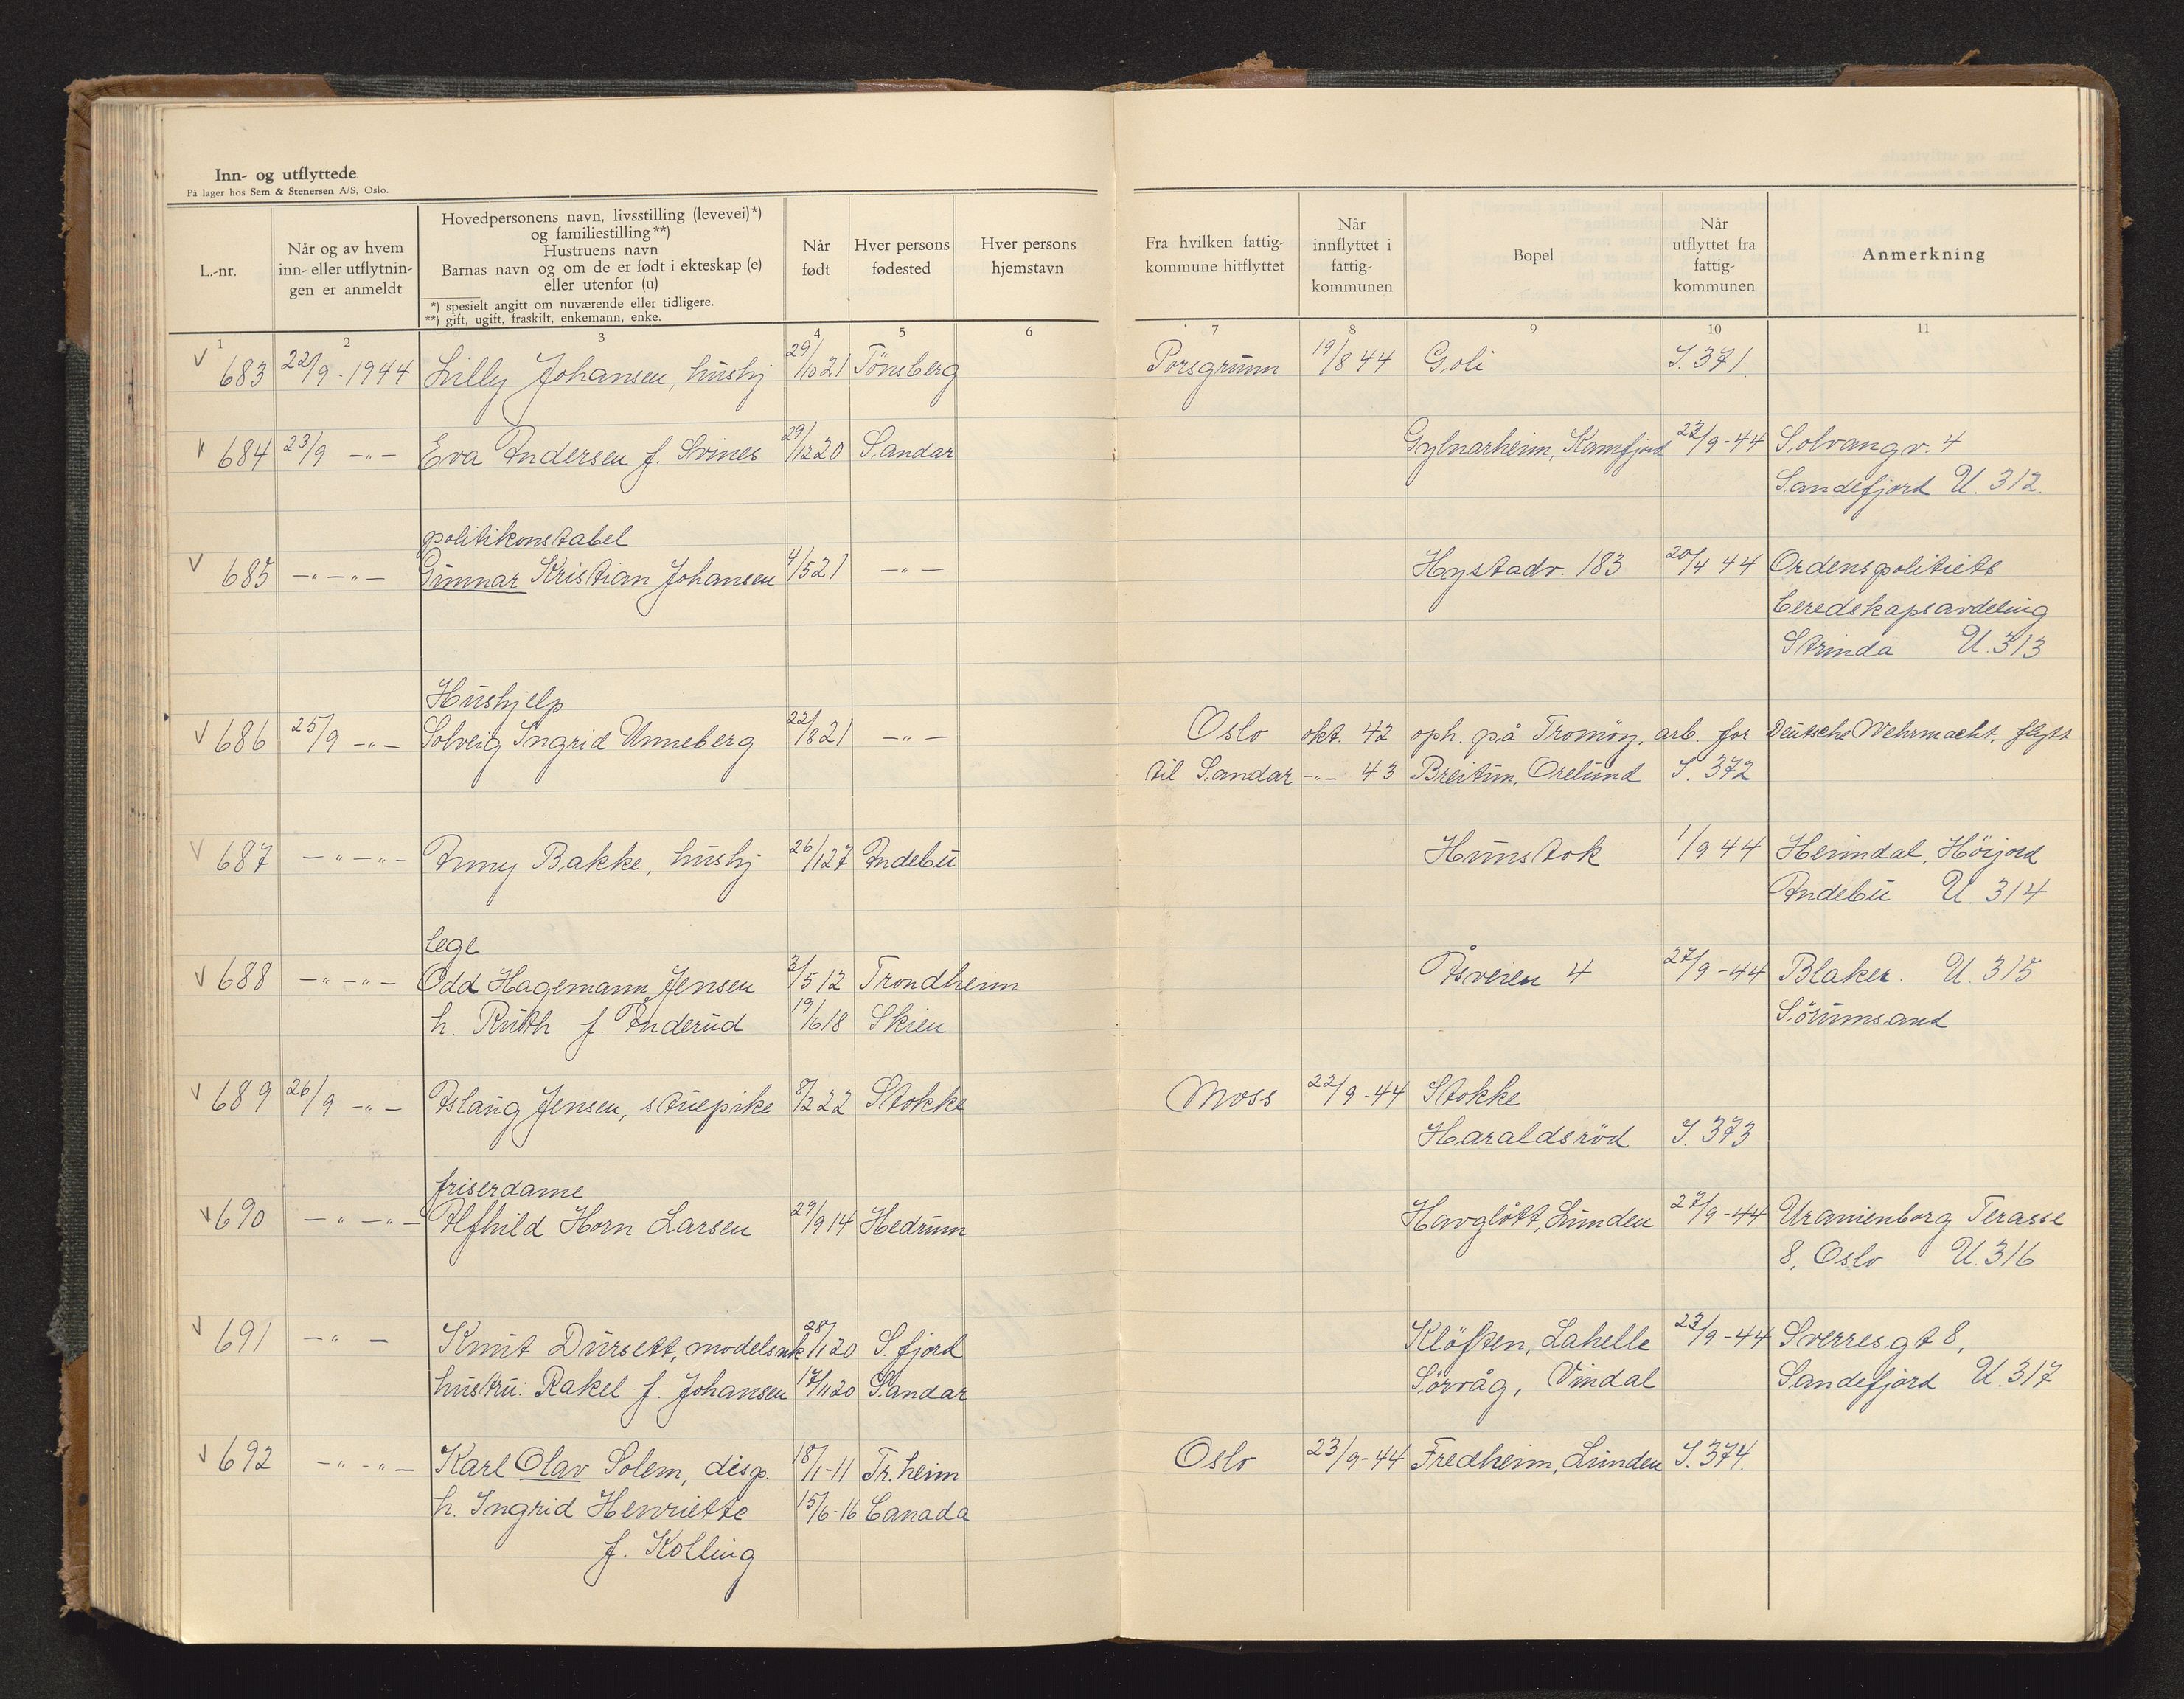 Inn- og utflyttede
På lager hos Sem & Stenersen A/S, Oslo.
L.-nr.
Når og av hvem
inn- eller utflytnin-
gen er anmeldt
Hovedpersonens navn, livsstilling (levevei)*)
og familiestilling**)
Hustruens navn
Barnas navn og om de er født i ekteskap (e)
eller utenfor (u)
*) spesielt angitt om nuværende eller tidligere.
**) gift, ugift, fraskilt, enkemann, enke.
Når
født
Hver persons
fødested
Hver persons
hjemstavn
Fra hvilken fattig-
kommune hitflyttet
Når
innflyttet i
fattig-
kommunen
Bopel
Når
utflyttet fra
fattig-
kommunen
Anmerkning
1 2 3 4 5 6 7 8 9 10 11
683 22/9-1944 Lilly Johansen, hushj 29/10 21 Tönsberg Porsgrunn 19/8 44 Goli I. 371
684 23/9 -"- Eva Andersen f. Svines 29/12 20 Sandar Gylnarheim, Kamfjord 22/9-44 Solvangv. 4
Sandefjord U. 312.
politikonstabel
685 -"-"- Gunnar Kristian Johansen 4/5 21 -"- Hystadv. 183 20/4 44 Ordenspolitiets
beredskapsavdeling
Strinda U. 313
Hushjelp
686 25/9 -"- Solveig Ingrid Unneberg 22/8 21 -"- Oslo okt. 42 oph. på Tromöy, arb. for Deutsche Wehrmacht, flytt
til Sandar -"- 43 Breitun, Orelund I. 372
687 -"-"- Anny Bakke, hushj 26/1 27 Andebu Hunstok 1/9 44 Heimdal, Höijord
Andebu U. 314
lege
688 -"-"- Odd Hagemann Jensen 3/5 12 Trondheim Åsveien 4 27/9-44 Blaker. U. 315
h. Ruth f. Anderud 19/6 18 Skien Sörumsand
689 26/9 -"- Aslaug Jensen, stuepike 8/2 22 Stokke Moss 22/9-44 Stokke
Haraldsröd I. 373
friserdame
690 -"-"- Alfhild Horn Larsen 29/9 14 Hedrum Havglött, Lunden 27/9-44 Uranienborg Terasse
8, Oslo U. 316
691 -"- Knut Dursett, modelsnk 28/1 20 S.fjord Klöften, Lahelle 23/9-44 Sverresgt 8,
hustru: Rakel f. Johansen 17/11 20 Sandar Sörvåg, Vindal Sandefjord U. 317
692 -"-"- Karl Olav Solem, disp. 18/1-11 Tr.heim Oslo 23/9-44 Fredheim, Lunden I. 374.
h. Ingrid Henriette 15/6-16 Canada
f. Kolling